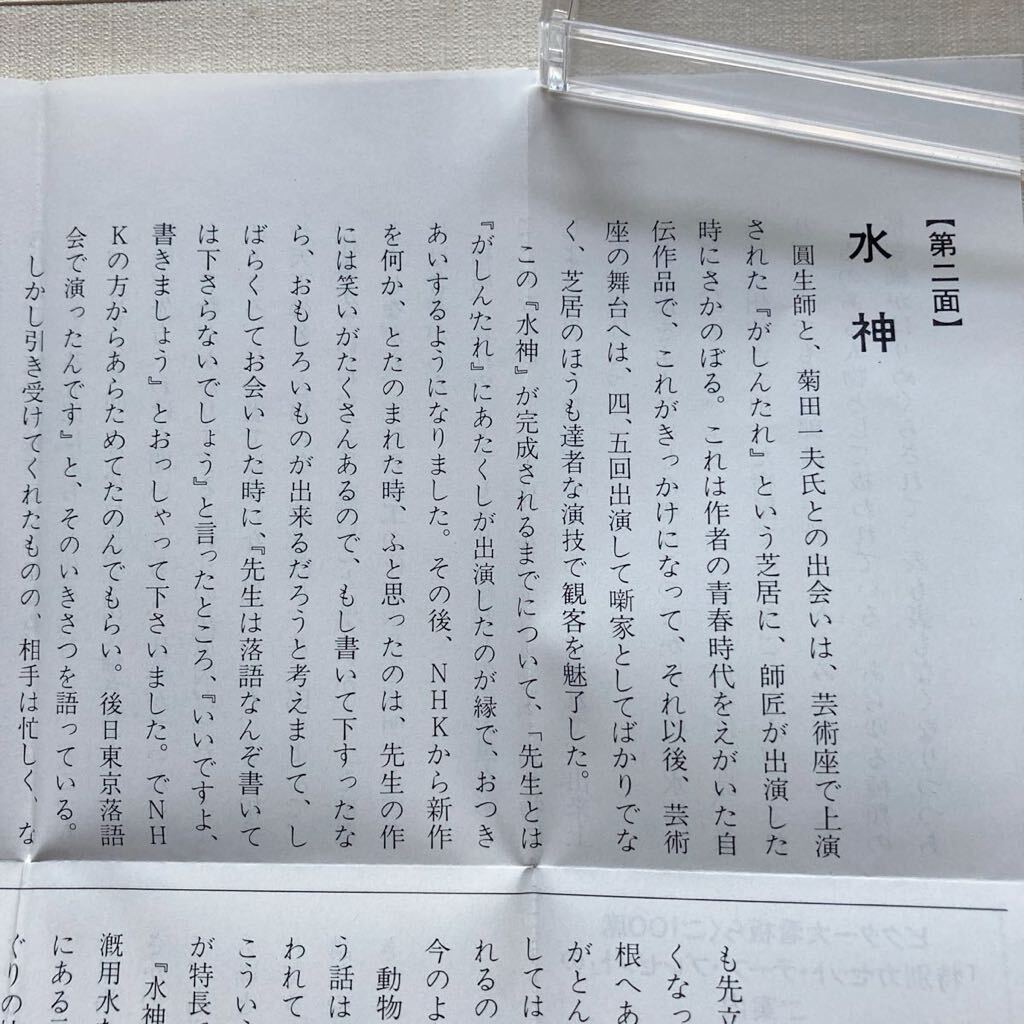 【第二面】
水神
圓生師と、菊田一夫氏との出会いは、芸術座で上演
された『がしんたれ』という芝居に、師匠が出演した
時にさかのぼる。これは作者の青春時代をえがいた自
伝作品で、これがきっかけになって、それ以後、芸術
座の舞台へは、四、五回出演して噺家としてばかりでな
く、芝居のほうも達者な演技で観客を魅了した。
この『水神』が完成されるまでについて、「先生とは
『がしんたれ』にあたくしが出演したのが縁で、おつき
あいするようになりました。その後、NHKから新作
を何か、とたのまれた時、ふと思ったのは、先生の作
には笑いがたくさんあるので、もし書いて下すったな
ら、おもしろいものが出来るだろうと考えまして、し
ばらくしてお会いした時に、『先生は落語なんぞ書いて
は下さらないでしょう』と言ったところ、『いいですよ、
書きましょう』とおっしゃって下さいました。でNH
Kの方からあらためてたのんでもらい。後日東京落語
会で演ったんです』と、そのいきさつを語っている。
しかし引き受けてくれたものの、相手は忙しく、な
も先立
くなっ
根へあ
がとん
しては
れるの
今のよ
動物
う話は
われて
こうい
が特長
『水神
漑用水
にある
ぐりの
ビクター大看板らくご100選
「特別カセット・テープ・プレゼント」
ご案内